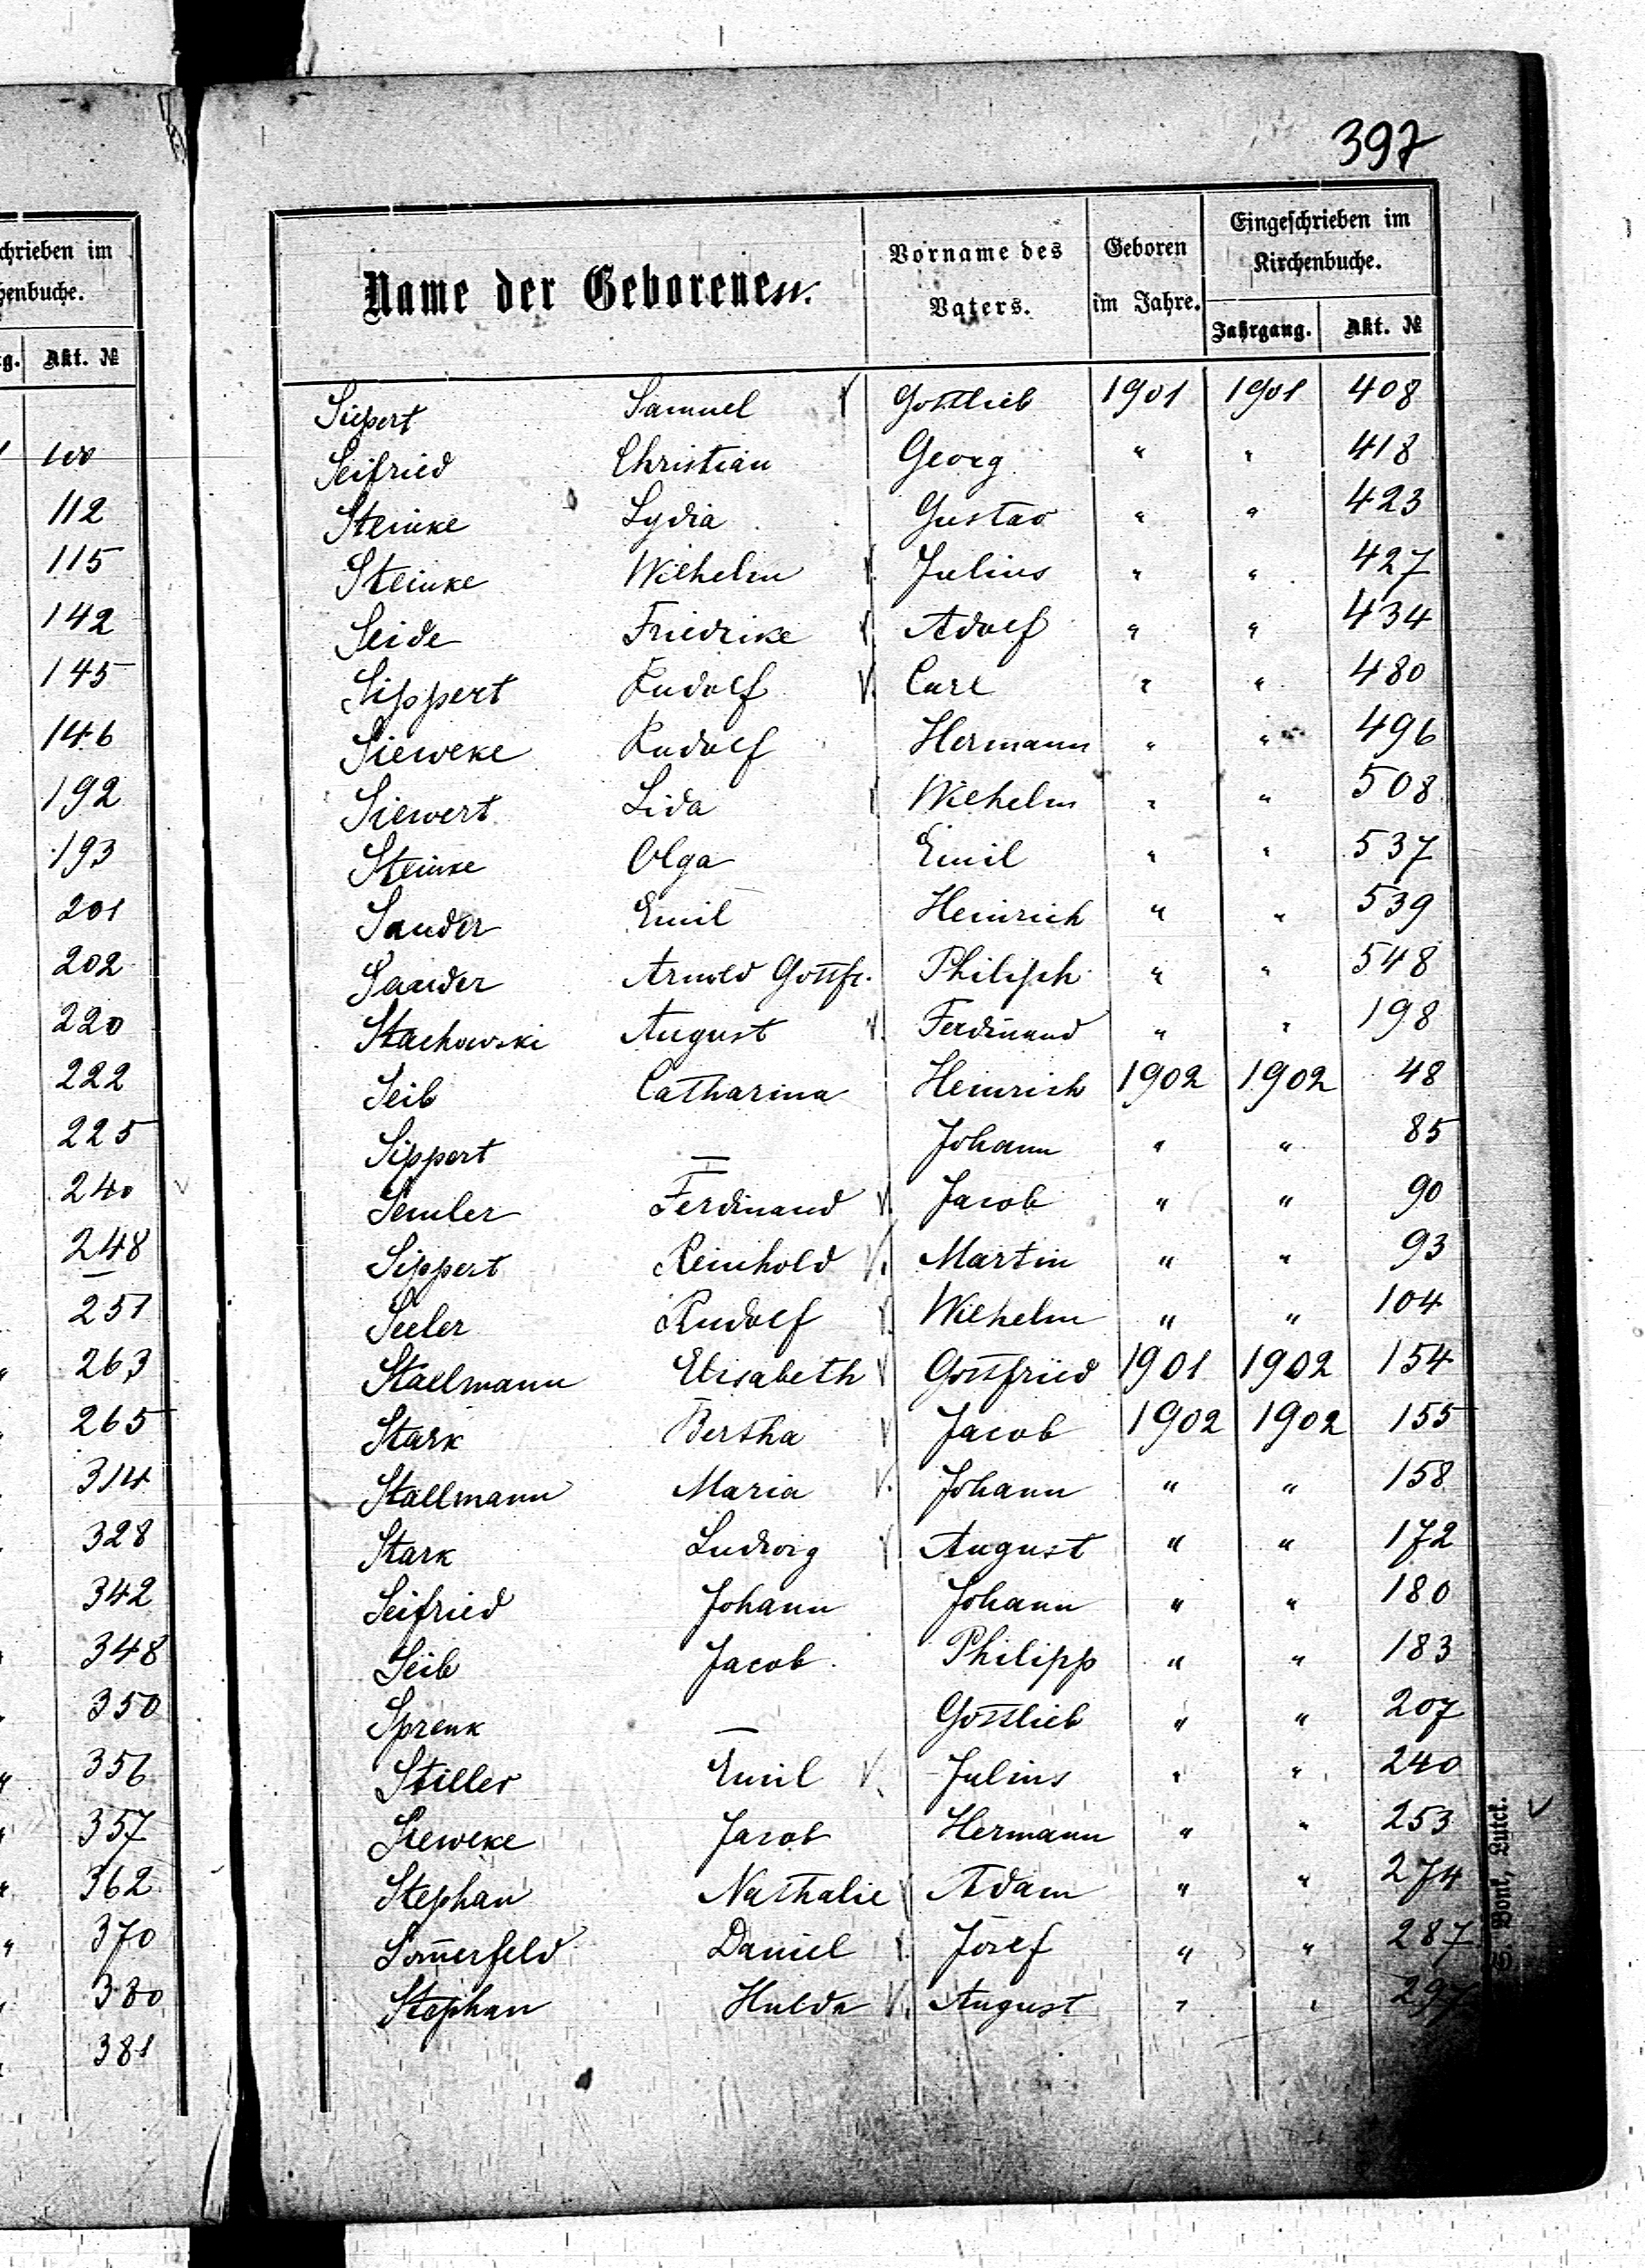 chrieben im
henbuche.
rg. Akt. №
100
112
115
142
145
146
192
193
201
202
220
222
225
240 v
248
251
263
265
314
328
342
348
350
356
357
362
370
380
381
397
Name der Geborenen. Vorname des Vaters. Geboren im Jahre. Eingeschrieben im Kirchenbuche.
Jahrgang. Akt. №
Siepert Samuel V Gottlieb 1901 1901 408
Seifried Christian Georg " " 418
Steinke Lydia Gustav " " 423
Steinke Wilhelm V. Julius " " 427
Seide Friedrike V. Adolf " " 434
Sippert Rudolf V. Carl " " 480
Sieweke Rudolf Hermann " " 496
Siewert Lida V Wilhelm " " 508
Steinke Olga Emil " " 537
Sander Emil Heinrich " " 539
Sander Arnold Gottfr. Philipp " " 548
Stachowski August V. Ferdinand " " 198
Seib Catharina Heinrich 1902 1902 48
Sippert — Johann " " 85
Semler Ferdinand V. Jacob " " 90
Sippert Reinhold V. Martin " " 93
Seeler Rudolf V. Wilhelm " " 104
Stallmann Elisabeth V Gottfried 1901 1902 154
Stark Bertha V Jacob 1902 1902 155
Stallmann Maria V. Johann " " 158
Stark Ludwig V August " " 172
Seifried Johann Johann " " 180
Seib Jacob Philipp " " 183
Sprenk — Gottlieb " " 207
Stiller Emil V. Julius " " 240
Sieweke Jacob Hermann " " 253 v
Stephan Nathalie V Adam " " 274
Som̅erfeld Daniel V. Josef " " 287
Stephan Hulda V. August " " 297
Bonk, Lutck.